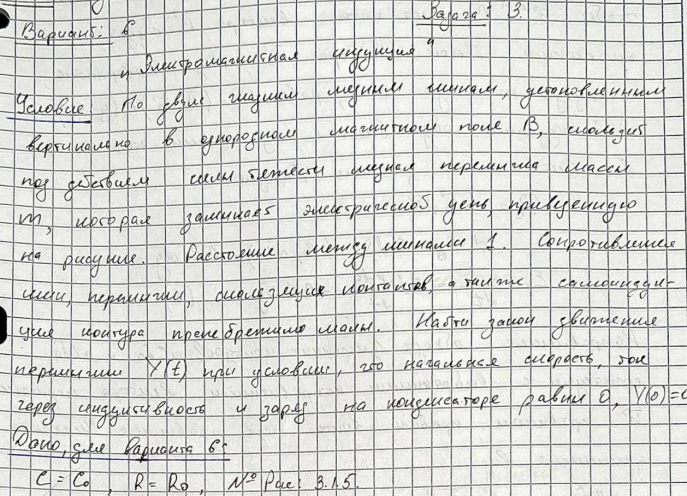 Задача: 3.
Вариант: 6
"Электромагнитная индукция"
Условие По двум гладким медным шинам, установленным
вертикально в однородном магнитном поле B, скользит
под действием силы тяжести медная перемычка массы
m, которая замыкает электрическую цепь, приведенную
на рисунке. Расстояние между шинами l. Сопротивление
шин, перемычки, скользящих контактов, а также самоиндук-
ция контура пренебрежимо малы. Найти закон движения
перемычки Y(t) при условии, что начальная скорость, ток
через индуктивность и заряд на конденсаторе равны 0, Y(0)=0
Дано, для варианта 6:
C = C₀, R = R₀, № Рис: 3.1.5.